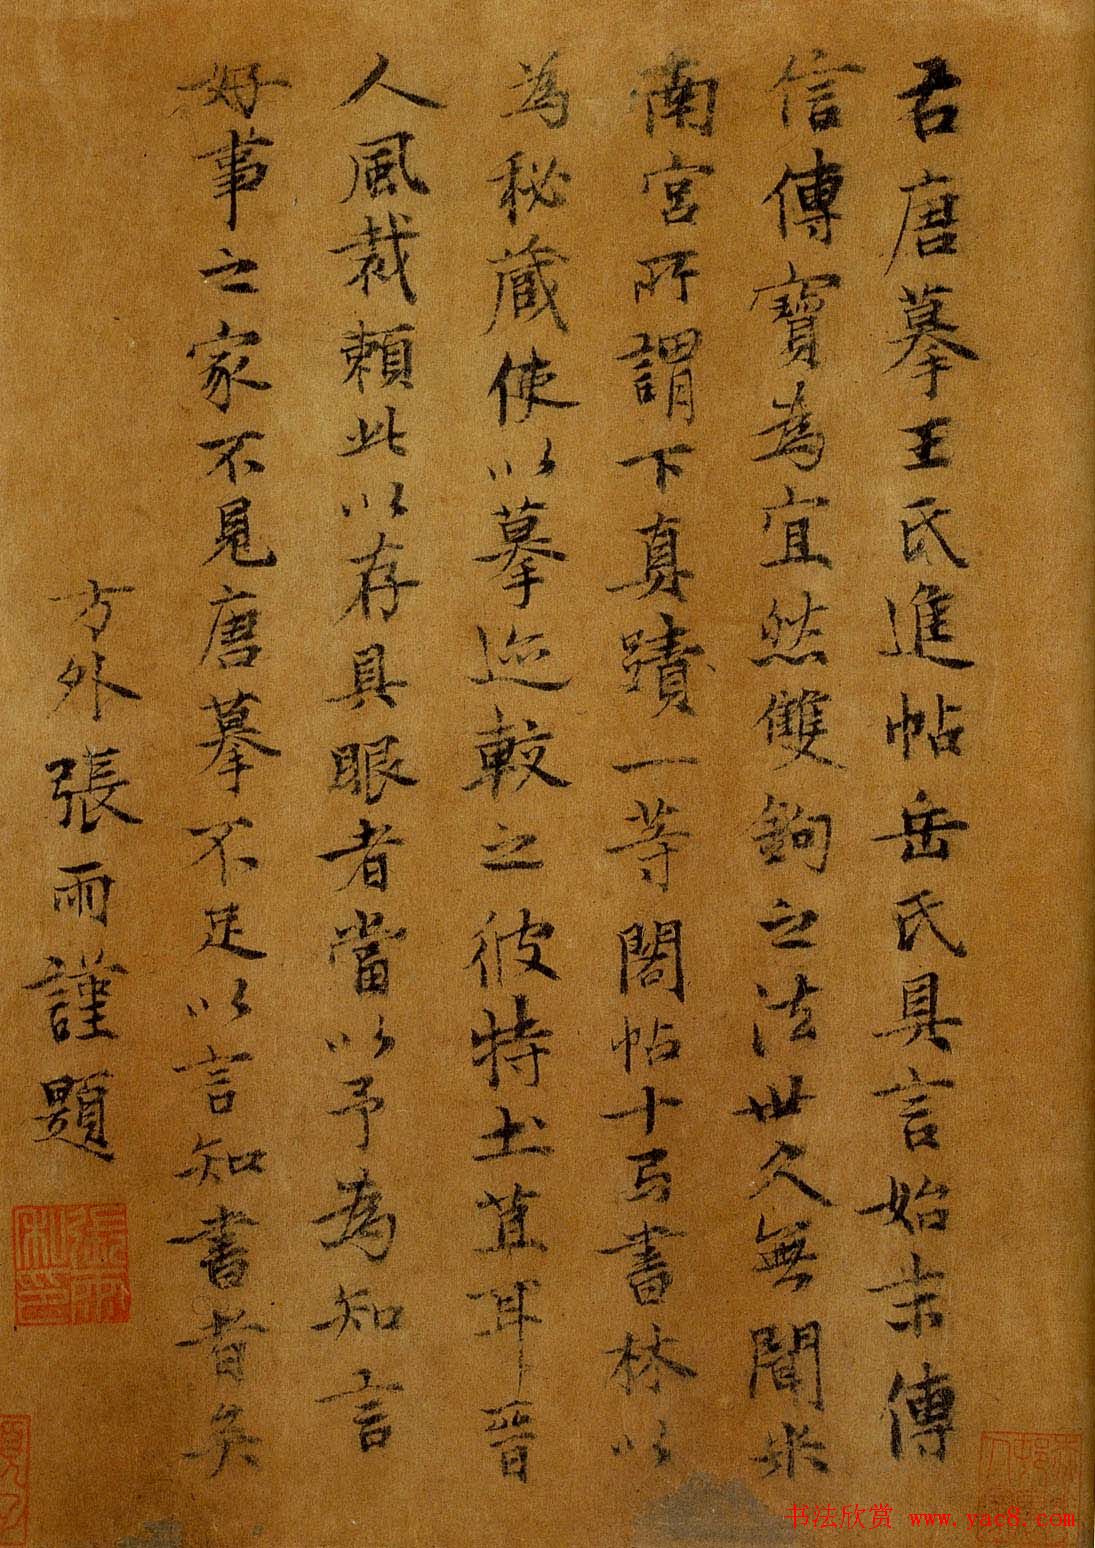 右唐摹王氏進帖岳氏具言始末傳
信傳寶為宜然雙鉤之法世久無聞米
南宮所謂下真蹟一等閣帖十弓書林以
為秘藏使以摹迹較之彼特土苴耳晉
人風裁賴此以存具眼者當以予為知言
好事之家不見唐摹不足以言知書者矣
方外張雨謹題
书法欣赏 www.yac8.com